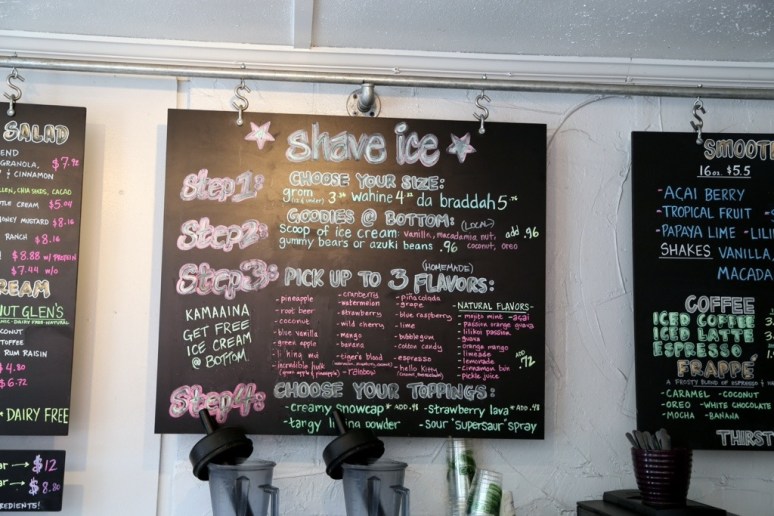 SALAD
GRANOLA, $7.92
& CINNAMON
CHIA SEEDS, CACAO
CREAM $5.04
HONEY MUSTARD $8.16
RANCH $8.16
$8.88 w/ PROTEIN
$7.44 w/o
CREAM
NUT GLEN'S
DAIRY FREE NATURAL
COCONUT
TOFFEE
RUM RAISIN
$4.80
$6.72
* DAIRY FREE
→ $12
→ $8.80
shave ice
Step1: CHOOSE YOUR SIZE:
grom 3. wahine 4. da braddah 5.
Step2: GOODIES @ BOTTOM: (LOCAL)
scoop of ice cream: vanilla, macadamia nut, add .96
gummy bears or azuki beans .96 coconut, oreo
Step3: PICK UP TO 3 FLAVORS: (HOMEMADE)
KAMAAINA
GET FREE
ICE CREAM
@ BOTTOM.
- pineapple
- root beer
- coconut
- blue vanilla
- green apple
- li hing mui
- incredible hulk
(green apple & pineapple)
- cranberry
- watermelon
- strawberry
- wild cherry
- mango
- banana
- tiger's blood
- rainbow
- piña colada
- grape
- blue raspberry
- lime
- bubblegum
- cotton candy
- espresso
- hello kitty
- NATURAL FLAVORS -
- mojito mint - açai
- passion orange guava
- lilikoi passion
- guava
- orange mango
- limeade
- lemonade
- cinnamon bun
- pickle juice
ADD .72
Step4: CHOOSE YOUR TOPPINGS:
- creamy snowcap * ADD .48 - strawberry lava * ADD .48
- tangy li hing powder - sour "supersaur" spray
SMOOT
16 oz. $5.5
- AÇAI BERRY
- TROPICAL FRUIT - S
- PAPAYA LIME - LILI
SHAKES VANILLA,
MACADA
COFFEE
ICED COFFEE
ICED LATTE
ESPRESSO
FRAPPÉ
A FROSTY BLEND OF ESPRESSO &
- CARAMEL - COCONUT
- OREO - WHITE CHOCOLATE
- MOCHA - BANANA
THIRST